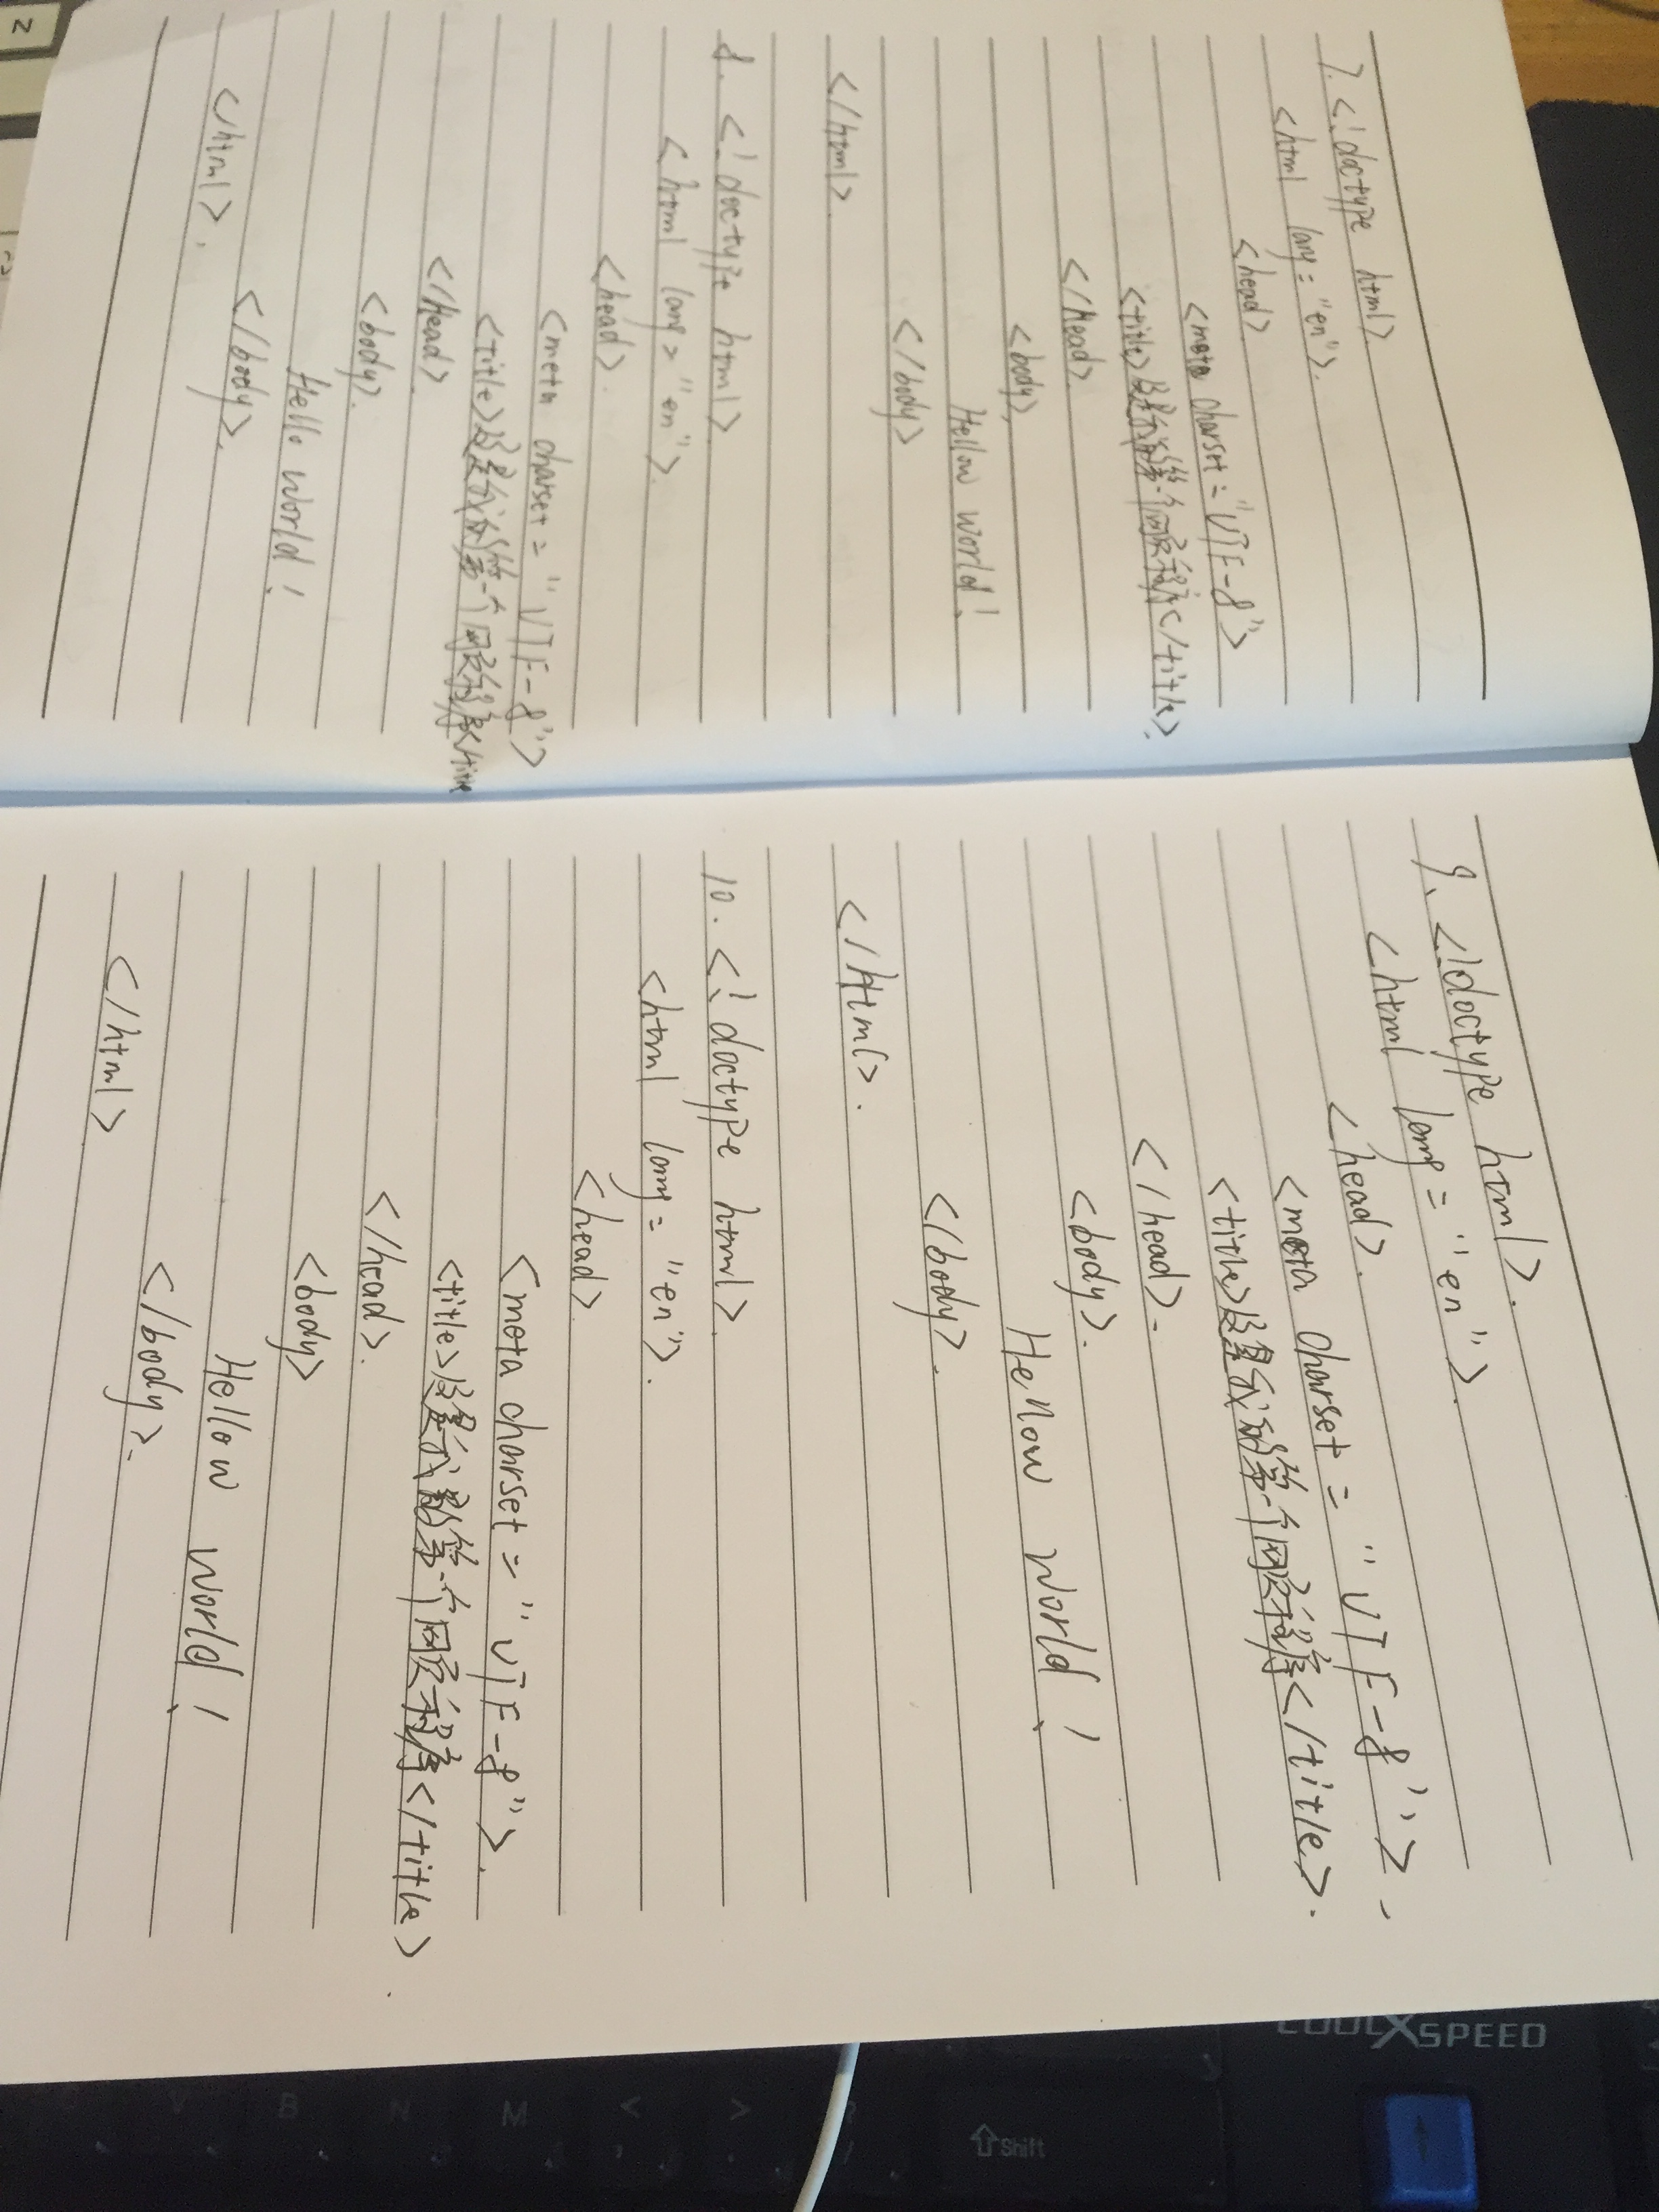 7. <!doctype html>
<html lang="en">.
<head>
<meta charset="UTF-8">
<title>这是我的第一个网页程序</title>.
</Head>
<body>
Hellow world!
</body>
</html>.
8. <!doctype html>
<html lang="en">.
<head>.
<meta charset="UTF-8">
<title>这是我的第一个网页程序</title
</Head>.
<body>.
Hello world!
</body>.
</html>.
9. <!doctype html>.
<html lang="en">.
<head>.
<meta charset="UTF-8">.
<title>这是我的第一个网页程序</title>.
</head>.
<body>.
Hellow world!
</body>.
</html>.
10. <!doctype html>.
<html lang="en">.
<head>
<meta charset="UTF-8">.
<title>这是我的第一个网页程序</title>.
</head>.
<body>
Hellow world!
</body>.
</html>
COOLXSPEED
V B N M < >
Shift
Z